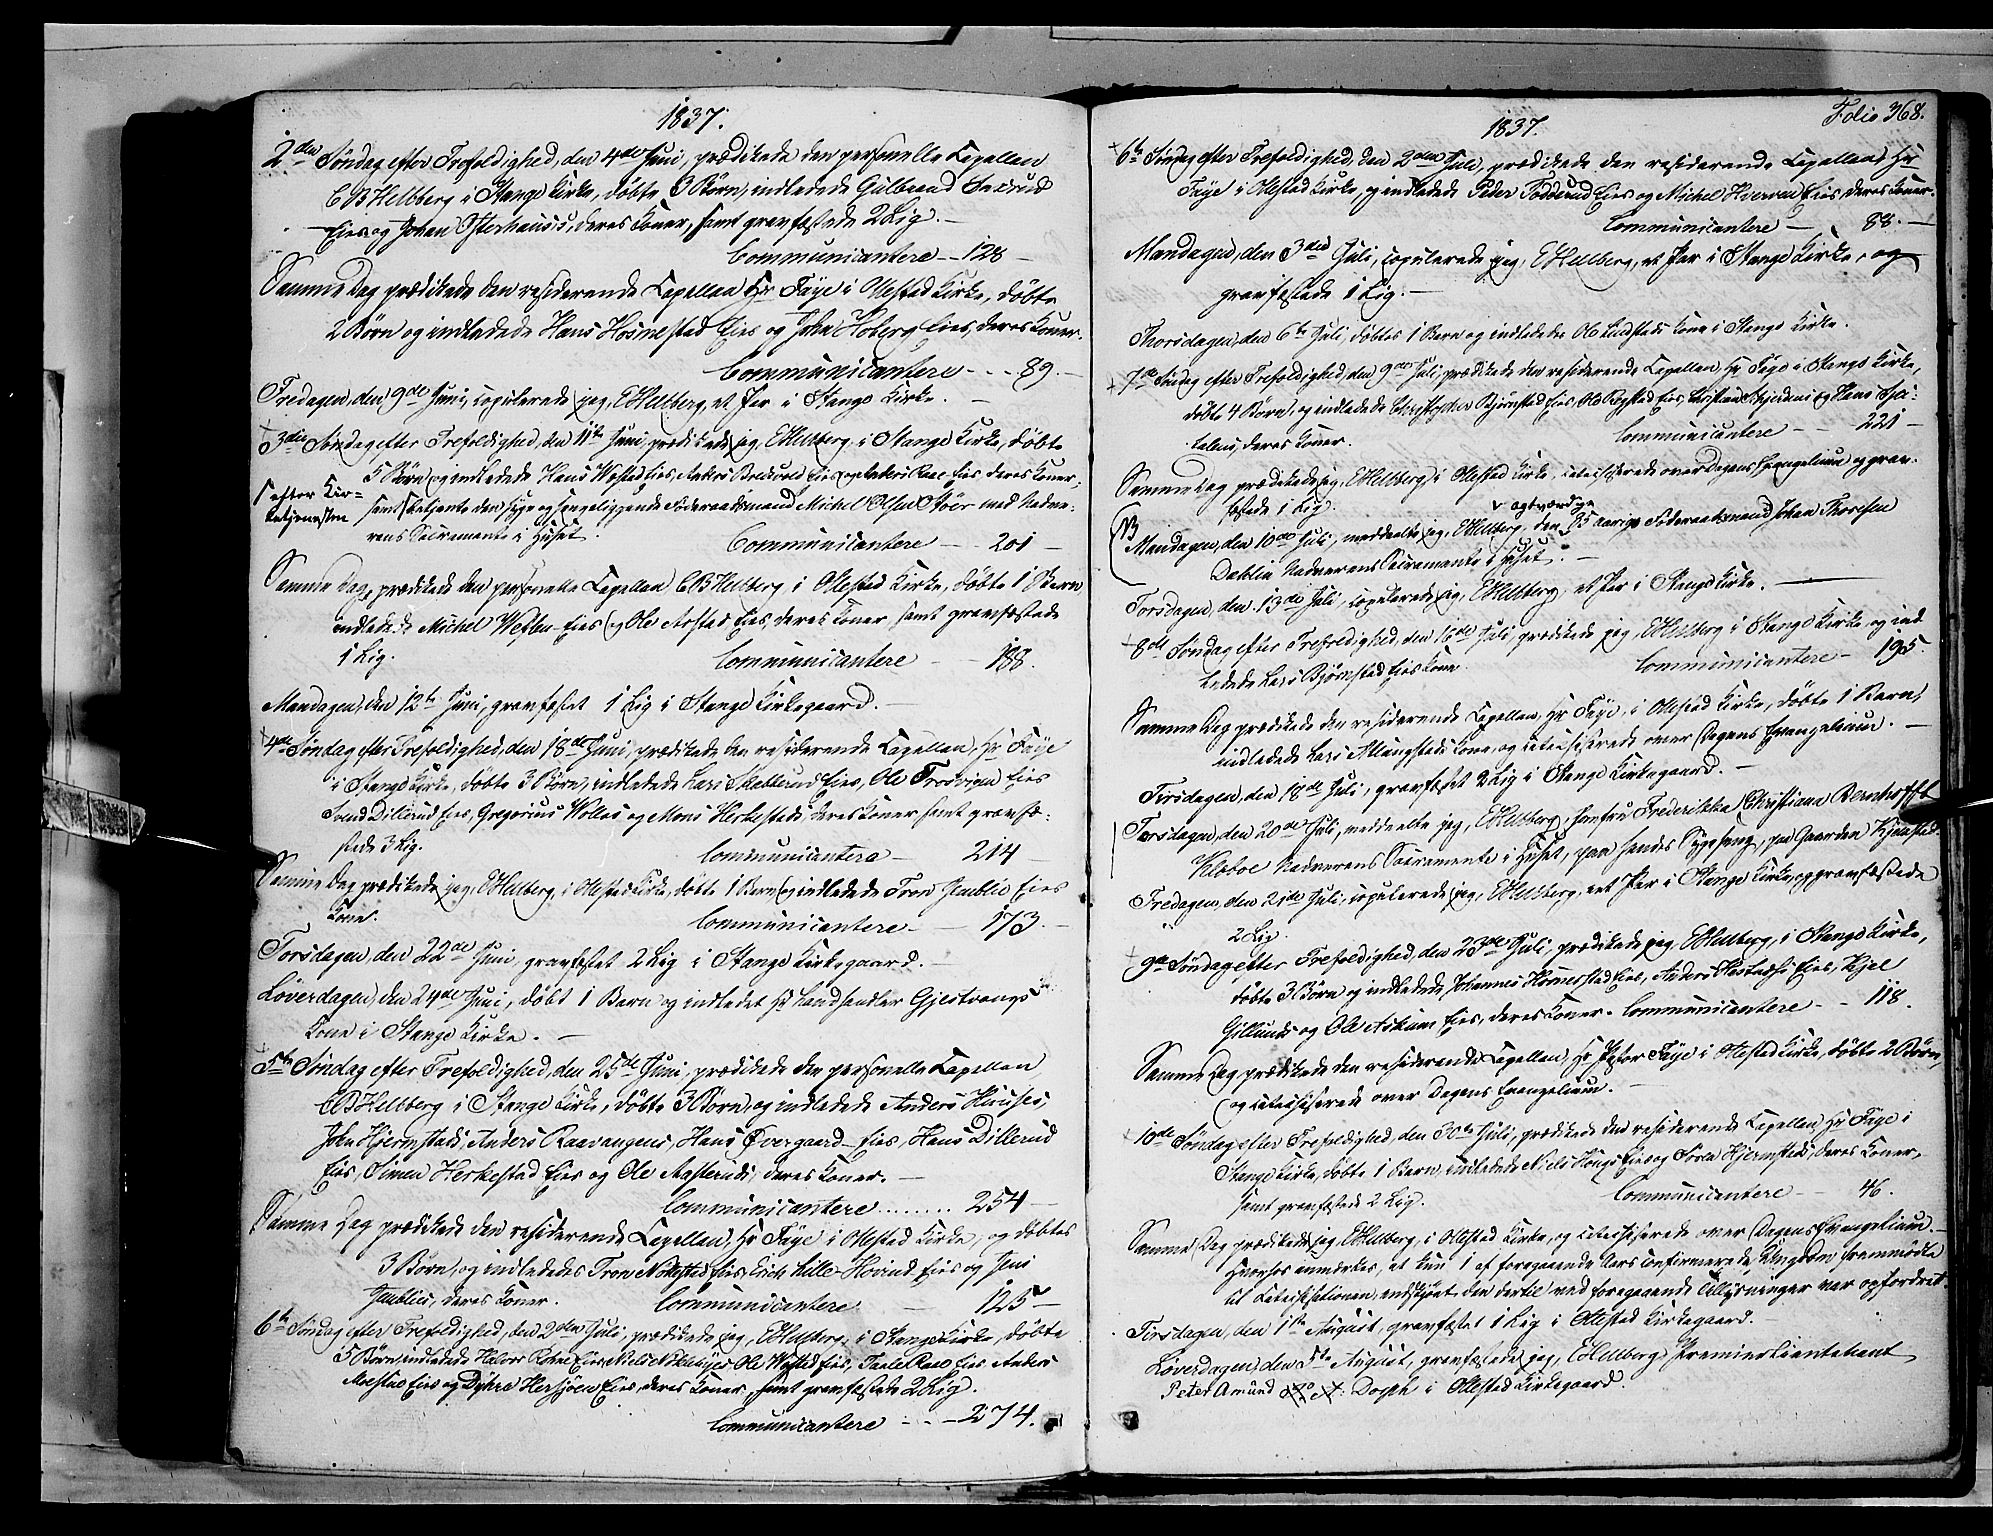 1837.
2den Søndag efter Trefoldighed, den 4de Juni, prædikede den personelle Capellan
CB Hellberg i Stange Kirke, døbte 3 Børn, indledede Gulbrand
Eies og Johan Osterhauss's, deres Koner, samt gravfæstede 2 Lig. —
Communicantere — 128 —
Samme Dag prædikede den residerende Capellan Hr Faye i Ottestad Kirke, døbte
2 Børn og indledede Hans Hosmestad Eies og John Hoberg Eies, deres Koner.
Communicantere - - - 89. —
Fredagen, den 9de Juni, copulerede jeg, EHellberg, et Par i Stange Kirke. —
3die Søndag efter Trefoldighed, den 11te Juni, prædikede jeg, EHellberg, i Stange Kirke, døbte
5 Børn og indledede Hans Eies, Anders Bredvold Eies og Anders Raae Eies deres Koner,
efter Kir=
ketjenesten
samt betjente den syge og sengeliggende Föderaadsmand Michel Olsen Stöer med Nadve-
rens Sacramente i Huset.
Communicantere - - 201 —
Samme Dag, prædikede den personelle Capellan CB Hellberg i Ottestad Kirke, døbte 1 Barn
indledede Michel Eies og Ole Arstad Eies, deres Koner samt gravfæstede
1 Lig.
Communicantere — — 188.
Mandagen, den 12te Juni, gravfæstet 1 Lig i Stange Kirkegaard. —
4de Søndag efter Trefoldighed, den 18de Juni, prædikede den residerende Capellan, Hr Faye
i Stange Kirke, døbte 3 Børn, indledede Lars Eies, Ole Frosvigen Eies
Svend Dillerud Eies, Gregorius og Mons Herkestads, deres Koner samt gravfæ-
stede 3 Lig.
Communicantere — 214
Samme Dag prædikede jeg, EHellberg, i Ottestad Kirke, døbte 1 Barn og indledede Tron Jemblie Eies
Kone.
Communicantere — — 173. —
Torsdagen, den 22de Juni, gravfæstet 2 Lig i Stange Kirkegaard. —
Löverdagen, den 24de Juni, döbt 1 Barn og indledet Hr Landhandler Gjestvangs
Kone i Stange Kirke. —
5te Søndag efter Trefoldighed, den 25de Juni, prædikede den personelle Capellan
CB Hellberg i Stange Kirke, døbte 3 Børn, og indledede Anders
John Hjermstads, Anders Raavangens, Hans Övergaard Eies, Hans Dillerud
Eies, Simen Herkestad Eies og Ole Aasteruds, deres Koner. —
Communicantere ........ 254 —
Samme Dag prædikede den residerende Capellan, Hr Faye i Ottestad Kirke, og døbtes
3 Børn, og indledede Tron Eies, Erich Lille-Hovind Eies og Jens
Jemblies, deres Koner. Communicantere — 125 —
6te Søndag efter Trefoldighed, den 2den Juli, prædikede jeg, EHellberg, i Stange Kirke, døbte
5 Børn, indledede Halvor Eies, Niels Ole Eies, Taale Raae Eies, Anders
Eies og Dyhre Hersjöen Eies, deres Koner, samt gravfæstede 2 Lig.
Communicantere - - - 274.
Folio 368.
1837.
6te Søndag efter Trefoldighed, den 2den Juli, prædikede den residerende Capellan Hr
Faye i Ottestad Kirke, og indledede Peder Eies og Michel Hverven Eies deres Koner.
Communicantere — 88. —
Mandagen, den 3die Juli, copulerede jeg, EHellberg, et Par i Stange Kirke, og
gravfæstede 1 Lig. —
Thorsdagen, den 6te Juli, döbtes 1 Barn og indlededes Ole Kone i Stange Kirke.
7de Søndag efter Trefoldighed, den 9de Juli, prædikede den residerende Capellan, Hr Faye i Stange Kirke,
döbte 4 Børn, og indledede Christopher Björnstad Eies, Ole Eies, Christian og Hans
deres Koner.
Communicantere - - 221 —
Samme Dag prædikede jeg, EHellberg i Ottestad Kirke, catechiserede over Dagens Evangelium og grav-
fæstede 1 Lig.
NB
Mandagen, den 10de Juli, meddeelte jeg, EHellberg, den 85 aarige Föderaadsmand Johan Thoresen
Dæhlin Nadverens Sacramente i Huset.
Torsdagen, den 13de Juli, copulerede jeg, EHellberg, et Par i Stange Kirke. —
8de Søndag efter Trefoldighed, den 16de Juli, prædikede jeg, EHellberg i Stange Kirke, og ind-
ledede Lars Björnstad Eies Kone.
Communicantere — 195.
Samme Dag prædikede den residerende Capellan, Hr Faye, i Ottestad Kirke, döbte 1 Barn,
indledede Lars Kone, og catechiserede over Dagens Evangelium. —
Tirsdagen, den 18de Juli, gravfæstet 2 Lig i Stange Kirkegaard. —
Torsdagen, den 20de Juli, meddeelte jeg, EHellberg, Jomfru Frederikka Christiane Berchhofft
Klöboe Nadverens Sacramente i Huset, paa hendes Sygeseng, paa Gaarden
Fredagen, den 21de Juli, copulerede jeg, EHellberg, eet Par i Stange Kirke, og gravfæstede
2 Lig.
9de Søndag efter Trefoldighed, den 23de Juli, prædikede jeg EHellberg, i Stange Kirke,
döbte 3 Børn og indledede Johannes Eies, Anders Eies, Kjel
Gillunds og Ole Askum Eies, deres Koner. Communicantere - - 118.
Samme Dag prædikede den residerende Capellan, Hr Pastor Faye i Ottestad Kirke, döbte 2 Børn,
og catechiserede over Dagens Evangelium. —
10de Søndag efter Trefoldighed, den 30te Juli, prædikede den residerende Capellan, Hr Faye i
Stange Kirke, döbte 1 Barn, indledede Niels Eies og Sören Hjermstads, deres Koner,
samt gravfæstede 2 Lig.
Communicantere - - 46.
Samme Dag prædikede jeg, EHellberg, i Ottestad Kirke, og catechiserede over Dagens Evangelium —
hvorhos anmærkes, at kun 1 af foregaaende Aars confirmerede Ungdom fremmödte
til Catechisationen, endskjönt den dertil ved foregaaende Tillysninger var opfordret.
Tirsdagen, den 1ste August, gravfæstet 1 Lig i Ottestad Kirkegaard.
Löverdagen, den 5te August, gravfæstede jeg, EHellberg, Premierlieutenant
Peter Amund Dorph i Ottestad Kirkegaard.